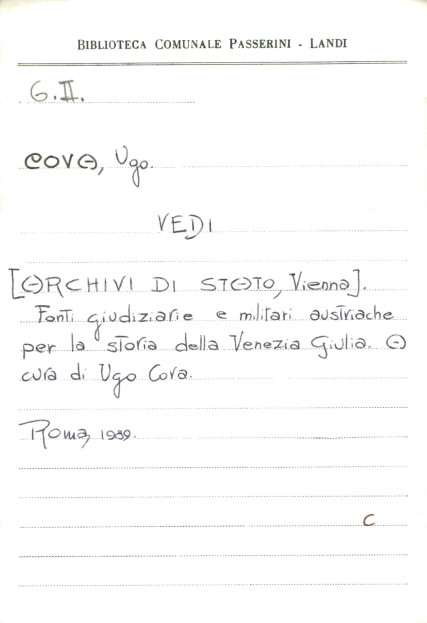 BIBLIOTECA COMUNALE PASSERINI - LANDI
G.II.
COVA, Ugo.
VEDI
[ARCHIVI DI STATO, Vienna].
Fonti giudiziarie e militari austriache
per la storia della Venezia Giulia. A
cura di Ugo Cova.
Roma, 1989.
C